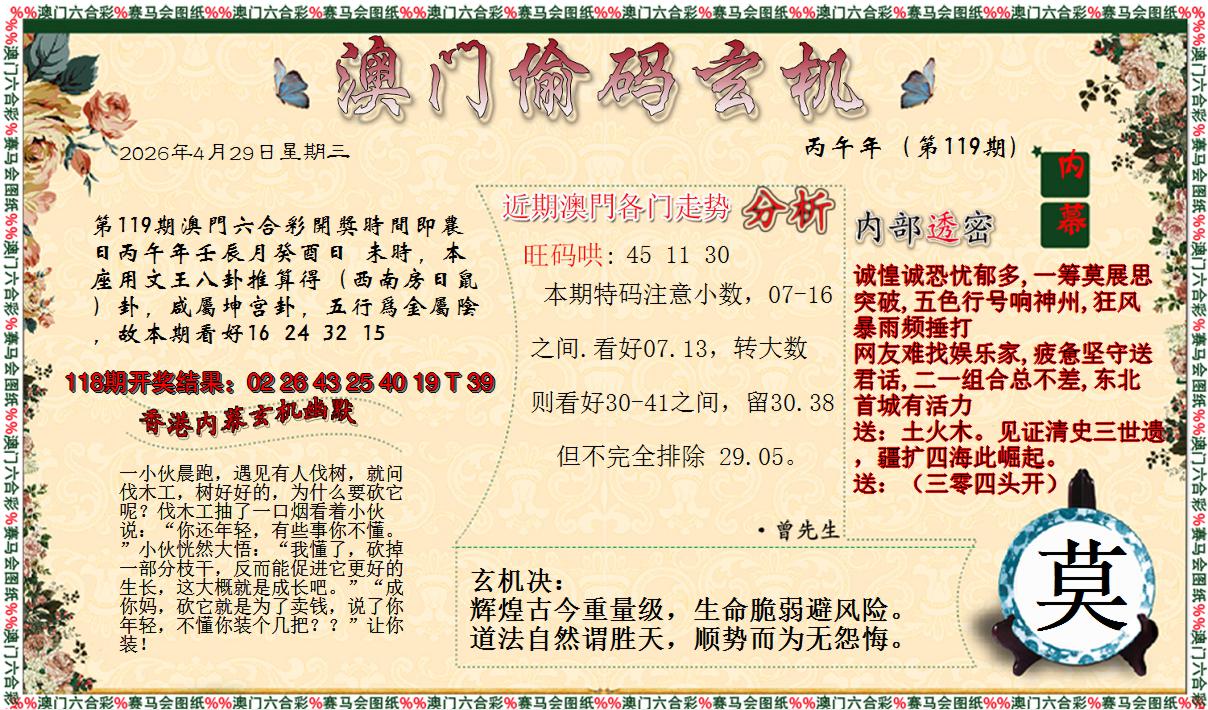 %%澳门六合彩%赛马会图纸%%澳门六合彩%赛马会图纸%%澳门六合彩%赛马会图纸%%澳门六合彩%赛马会图纸%%澳门六合彩%赛马会图纸%%澳门六合彩%赛马会图纸%%
澳门偷码玄机
2026年4月29日星期三
丙午年（第119期）
内
幕
第119期澳門六合彩開獎時間即農
日丙午年壬辰月癸酉日 未時，本
座用文王八卦推算得（西南房日鼠
）卦，咸屬坤宫卦，五行爲金屬陰
，故本期看好16 24 32 15
118期开奖结果：02 26 43 25 40 19 T 39
香港内幕玄机幽默
一小伙晨跑，遇见有人伐树，就问
伐木工，树好好的，为什么要砍它
呢？伐木工抽了一口烟看着小伙
说：“你还年轻，有些事你不懂。
”小伙恍然大悟：“我懂了，砍掉
一部分枝干，反而能促进它更好的
生长，这大概就是成长吧。”“成
你妈，砍它就是为了卖钱，说了你
年轻，不懂你装个几把？？”让你
装！
近期澳門各门走势 分析
旺码哄: 45 11 30
本期特码注意小数，07-16
之间.看好07.13，转大数
则看好30-41之间，留30.38
但不完全排除 29.05。
·曾先生
内部透密
诚惶诚恐忧郁多,一筹莫展思
突破,五色行号响神州,狂风
暴雨频捶打
网友难找娱乐家,疲惫坚守送
君话,二一组合总不差,东北
首城有活力
送：土火木。见证清史三世遗
，疆扩四海此崛起。
送：（三零四头开）
玄机决：
辉煌古今重量级，生命脆弱避风险。
道法自然谓胜天，顺势而为无怨悔。
莫
%%澳门六合彩%赛马会图纸%%澳门六合彩%赛马会图纸%%澳门六合彩%赛马会图纸%%澳门六合彩%赛马会图纸%%澳门六合彩%赛马会图纸%%澳门六合彩%赛马会图纸%%